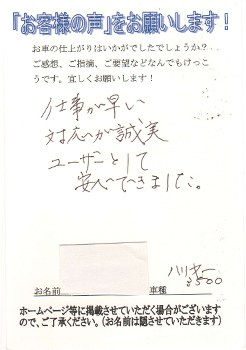 「お客様の声」をお願いします！
お車の仕上がりはいかがでしたでしょうか？
ご感想、ご指摘、ご要望などなんでもけっこ
うです。宜しくお願いします！
仕事が早い
対応が誠実
ユーザーとして
安心できました。
お名前 車種 ハリヤー
3500
ホームページ等に掲載させていただく場合がございます
ので、ご了承ください。（お名前は隠させていただきます）